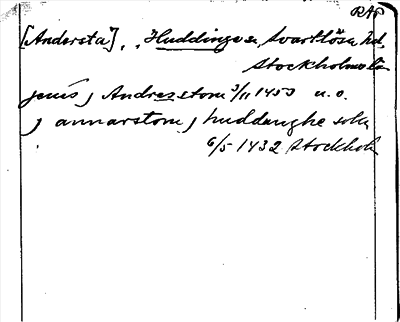 RAP
[Andersta], Huddinge sn, Svartlösa hd,
Stockholms lä
jenis j Andresstom 3/11 1453 u. o.
j annarstom j huddunghe sokn
6/5 1432 Stockholm